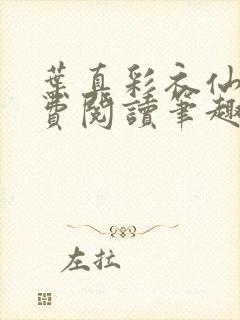 葉真彩衣仙
費閱讀筆趣
左拉